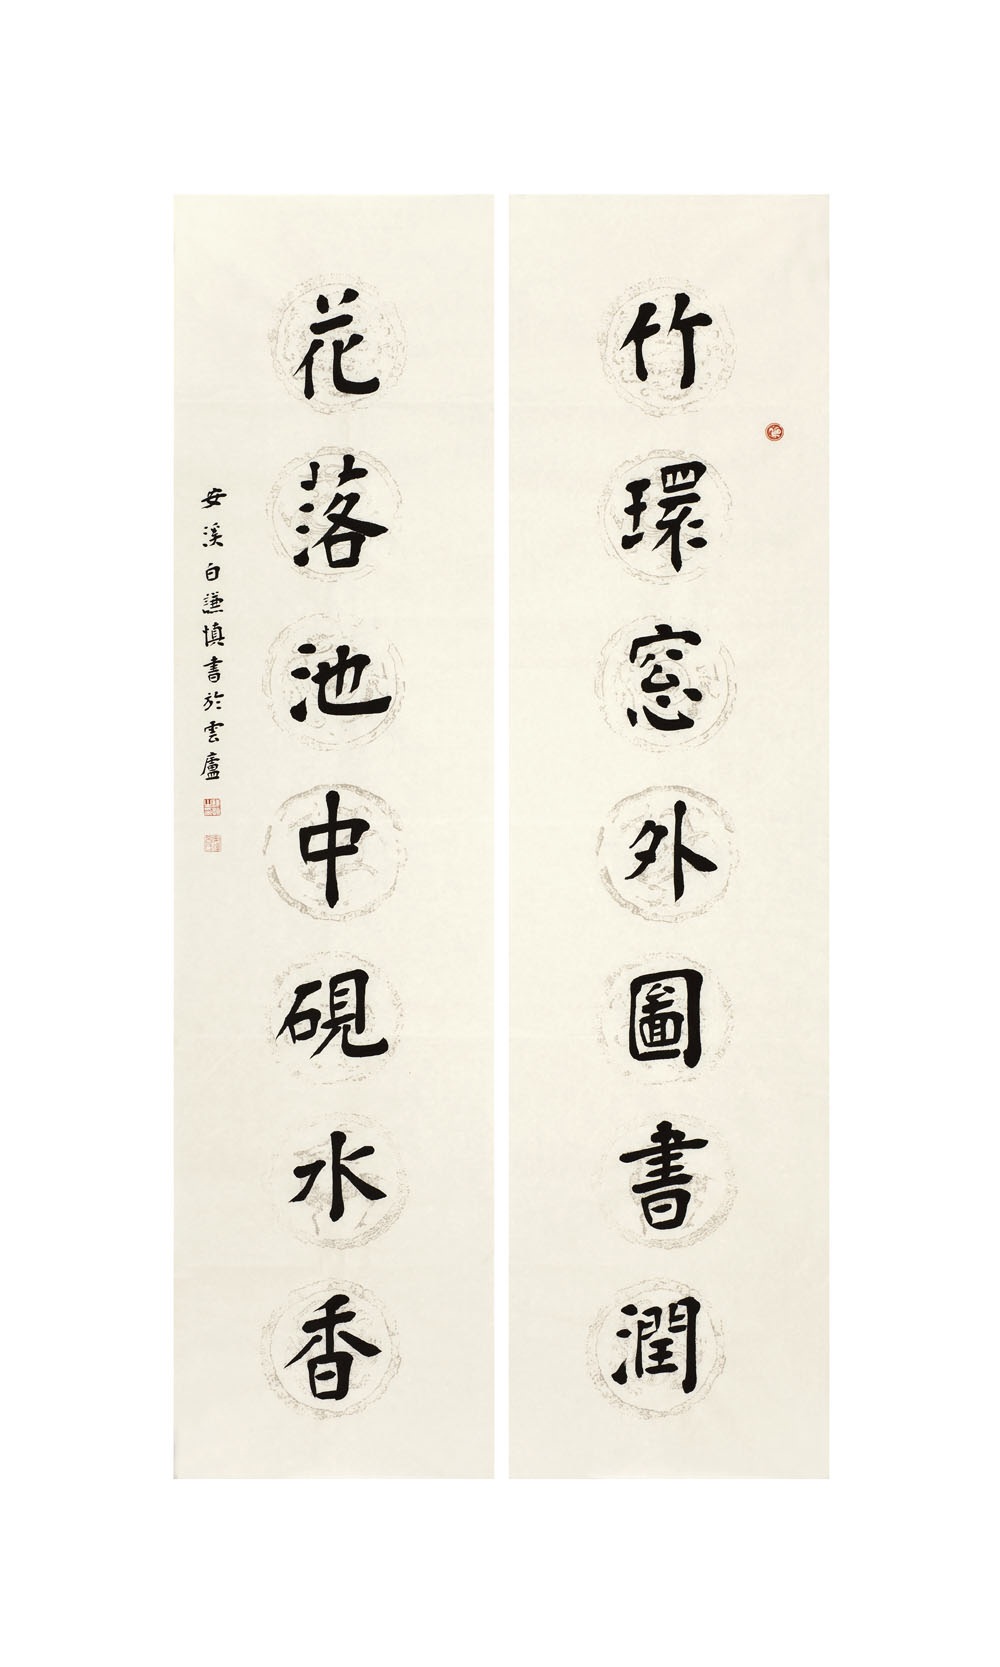 竹環窓外圖書潤
花落池中硯水香
安溪白謙慎書於雲廬